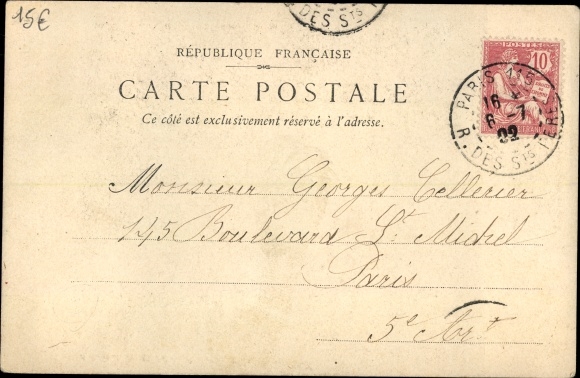 15€
DES Sts
RÉPUBLIQUE FRANÇAISE
CARTE POSTALE
Ce côté est exclusivement réservé à l'adresse.
POSTES
10
PARIS 115
16
6 -7
02
R. DES Sts PÈR
Monsieur Georges Cellerier
145 Boulevard St Michel
Paris
5e Art